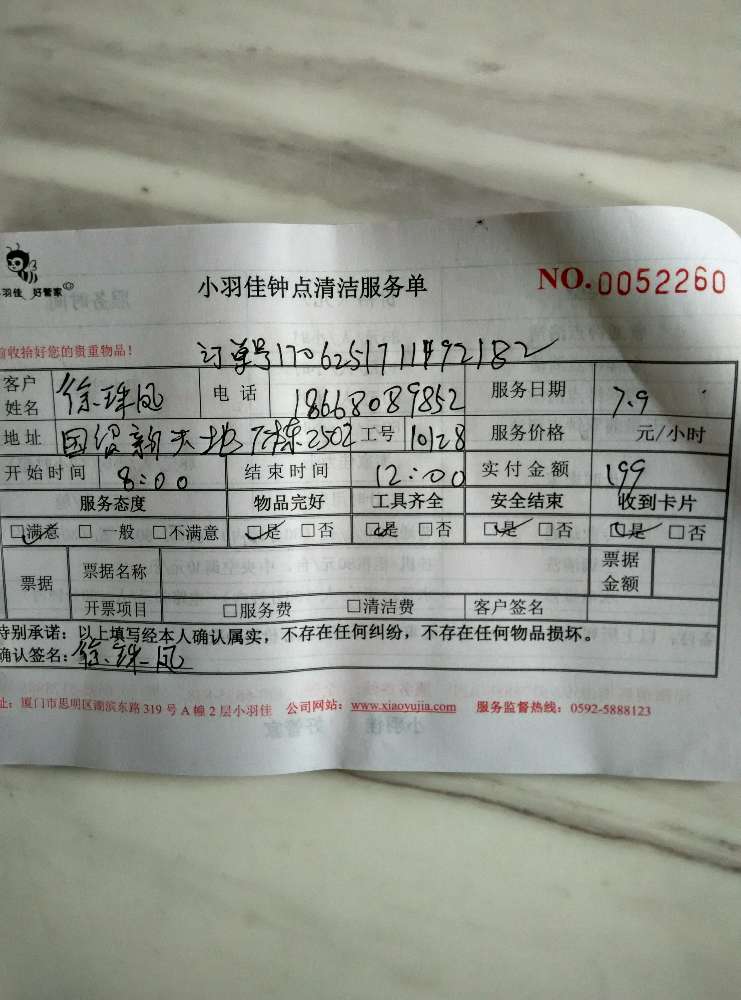 小羽佳钟点清洁服务单 NO.0052260
羽佳 好管家
收拾好您的贵重物品!
订单号170625171149 2182
客户姓名 徐珠凤 电话 18668089852 服务日期 7.9
地址 国贸新天地 7栋2502 工号 10128 服务价格 元/小时
开始时间 8:00 结束时间 12:00 实付金额 199
服务态度 物品完好 工具齐全 安全结束 收到卡片
□满意 □一般 □不满意 □是 □否 □是 □否 □是 □否 □是 □否
票据 票据名称 票据金额
开票项目 □服务费 □清洁费 客户签名
特别承诺:以上填写经本人确认属实,不存在任何纠纷,不存在任何物品损坏。
确认签名:徐珠凤
址:厦门市思明区湖滨东路 319 号 A 幢 2 层小羽佳 公司网站:www.xiaoyujia.com 服务监督热线:0592-5888123